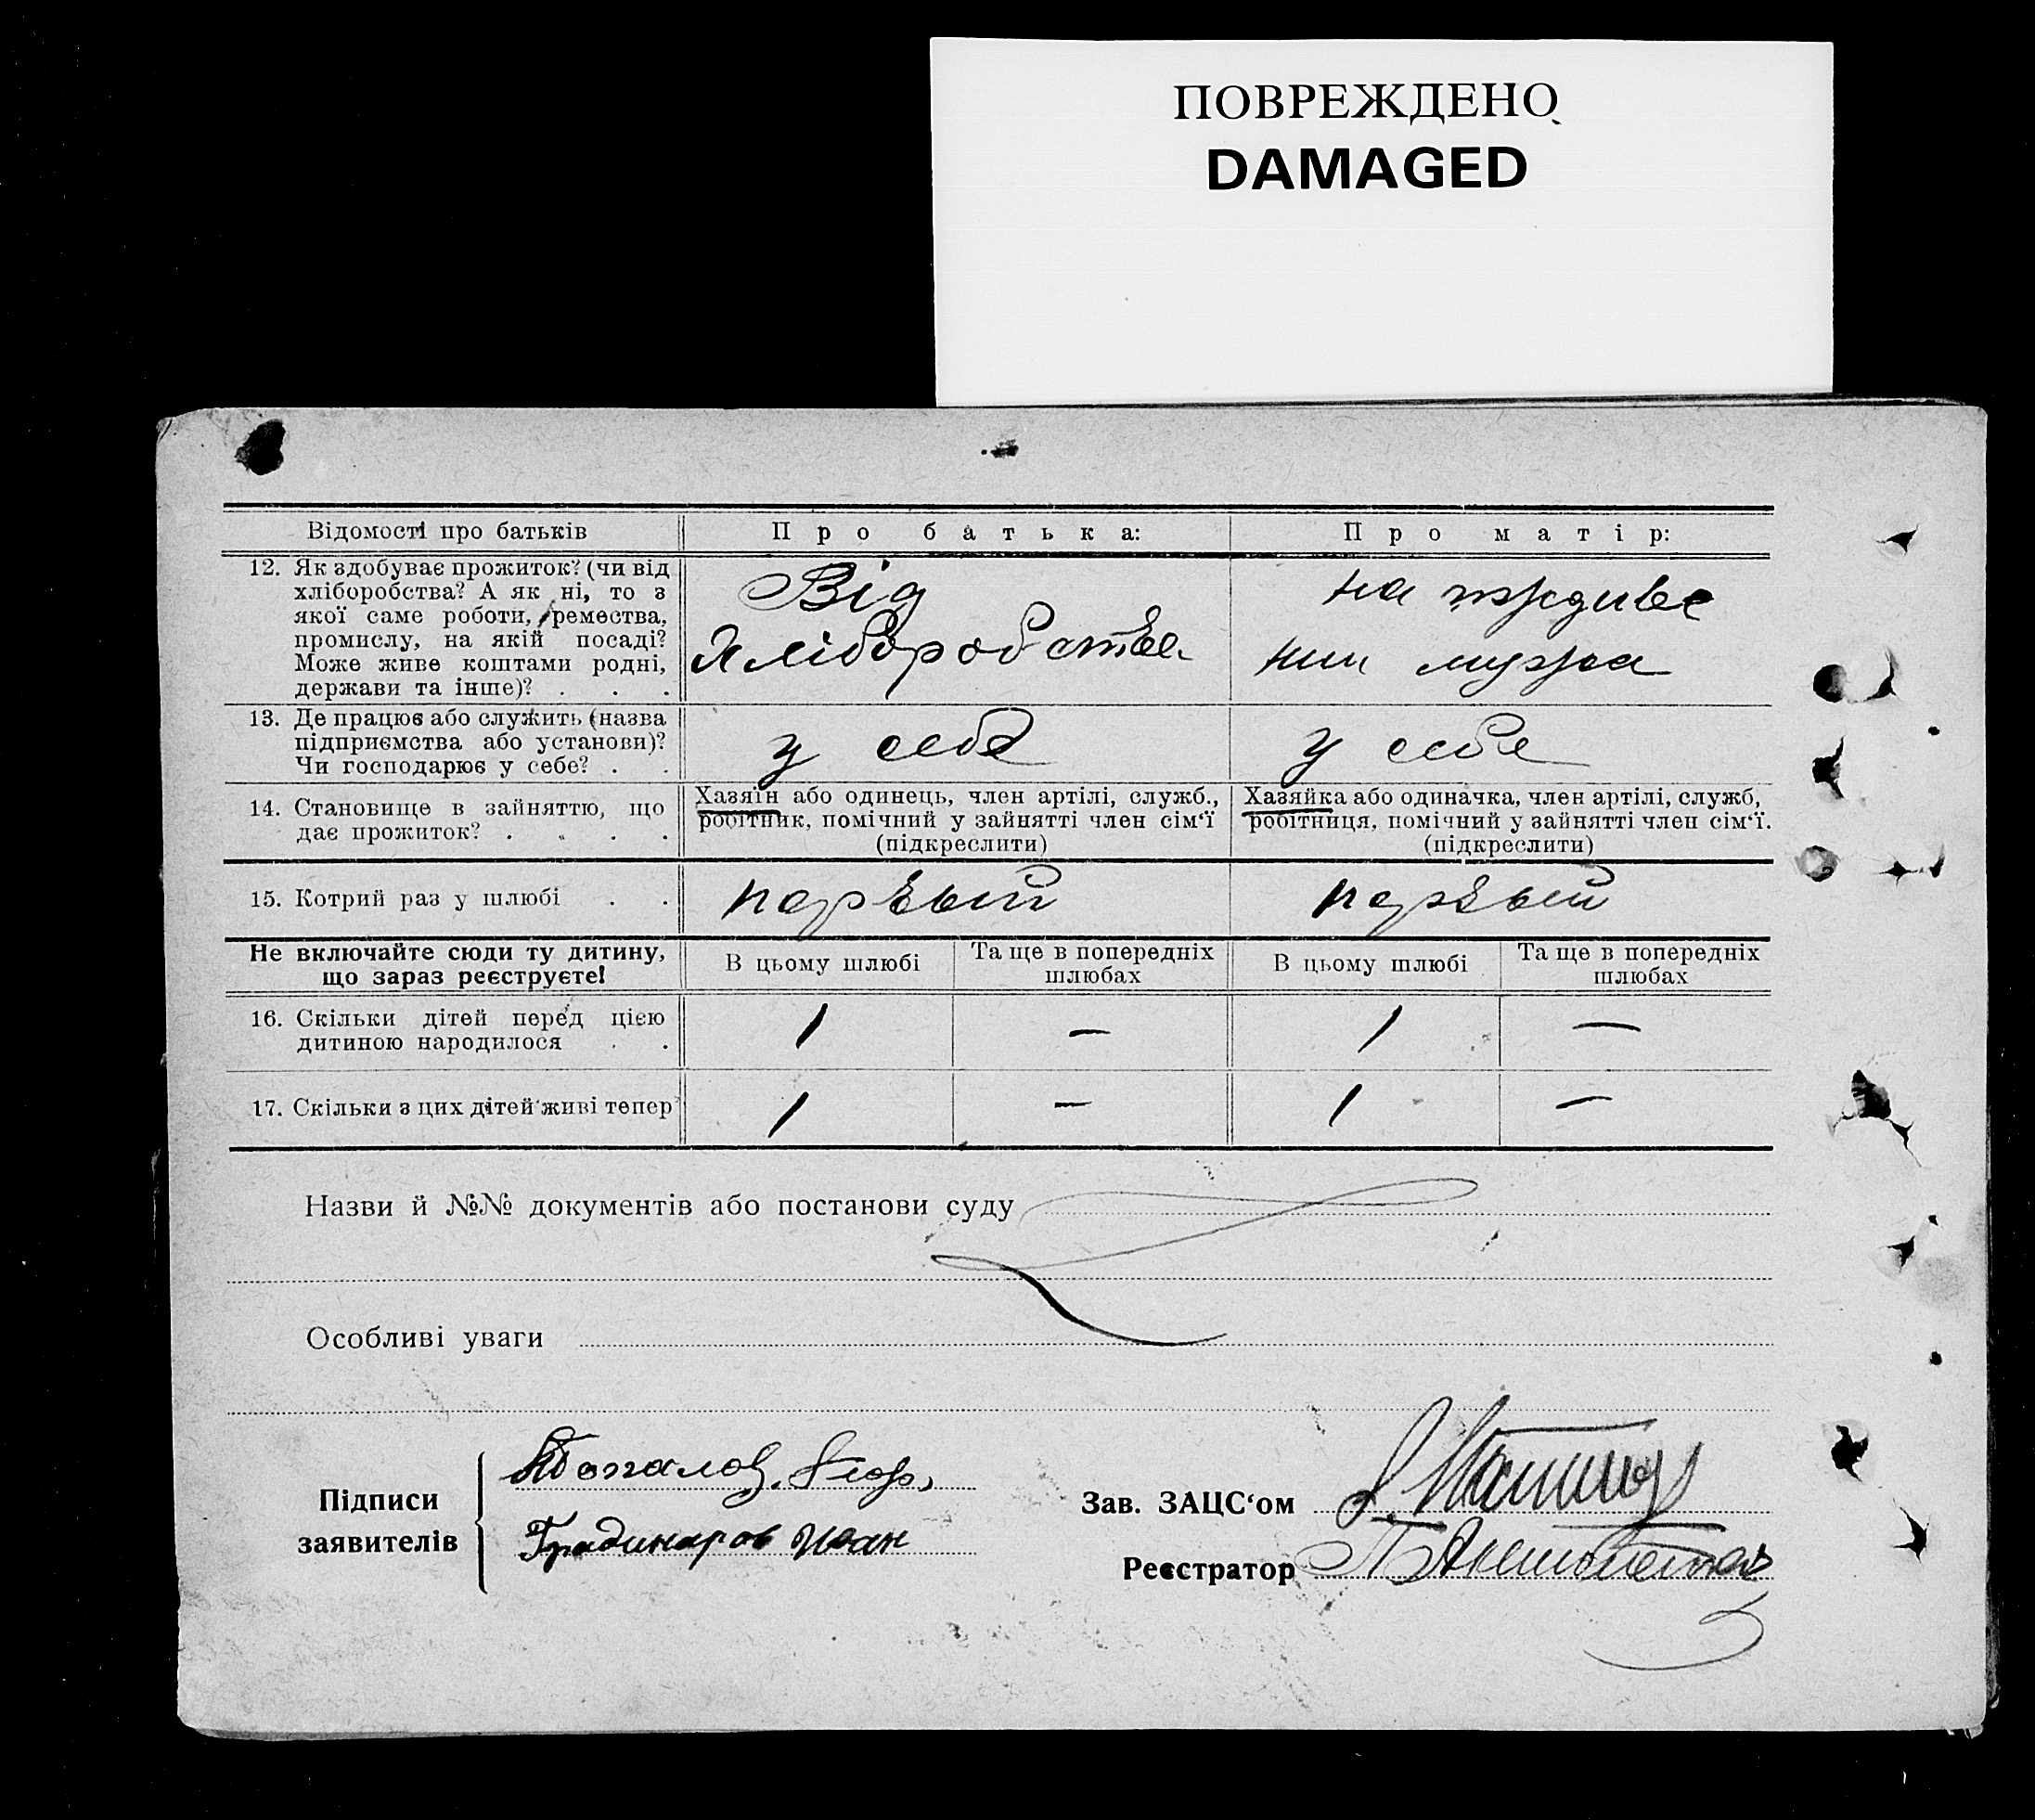 ПОВРЕЖДЕНО
DAMAGED
Відомості про батьків
Про батька:
Про матір:
12. Як здобуває прожиток? (чи від
хліборобства? А як ні, то з
якої саме роботи, ремества,
промислу, на якій посаді?
Може живе коштами родні,
держави та інше)? . . .
Від
Хліборобства
на иждиве
нии мужа
13. Де працює або служить (назва
підприємства або установи)?
Чи господарює у себе? . .
у себе
у себе
14. Становище в зайняттю, що
дає прожиток? . . . .
Хазяїн або одинець, член артілі, служб.,
робітник, помічний у зайнятті член сім‘ї
(підкреслити)
Хазяйка або одиначка, член артілі, служб,
робітниця, помічний у зайнятті член сім‘ї.
(підкреслити)
15. Котрий раз у шлюбі . .
первый
первый
Не включайте сюди ту дитину,
що зараз реєструєте!
В цьому шлюбі
Та ще в попередніх
шлюбах
В цьому шлюбі
Та ще в попередніх
шлюбах
16. Скільки дітей перед цією
дитиною народилося . .
1
—
1
—
17. Скільки з цих дітей живі тепер
1
—
1
—
Назви й №№ документів або постанови суду
Особливі уваги
Підписи
заявителів
Градинаров Иван
Зав. ЗАЦС‘ом
Реєстратор